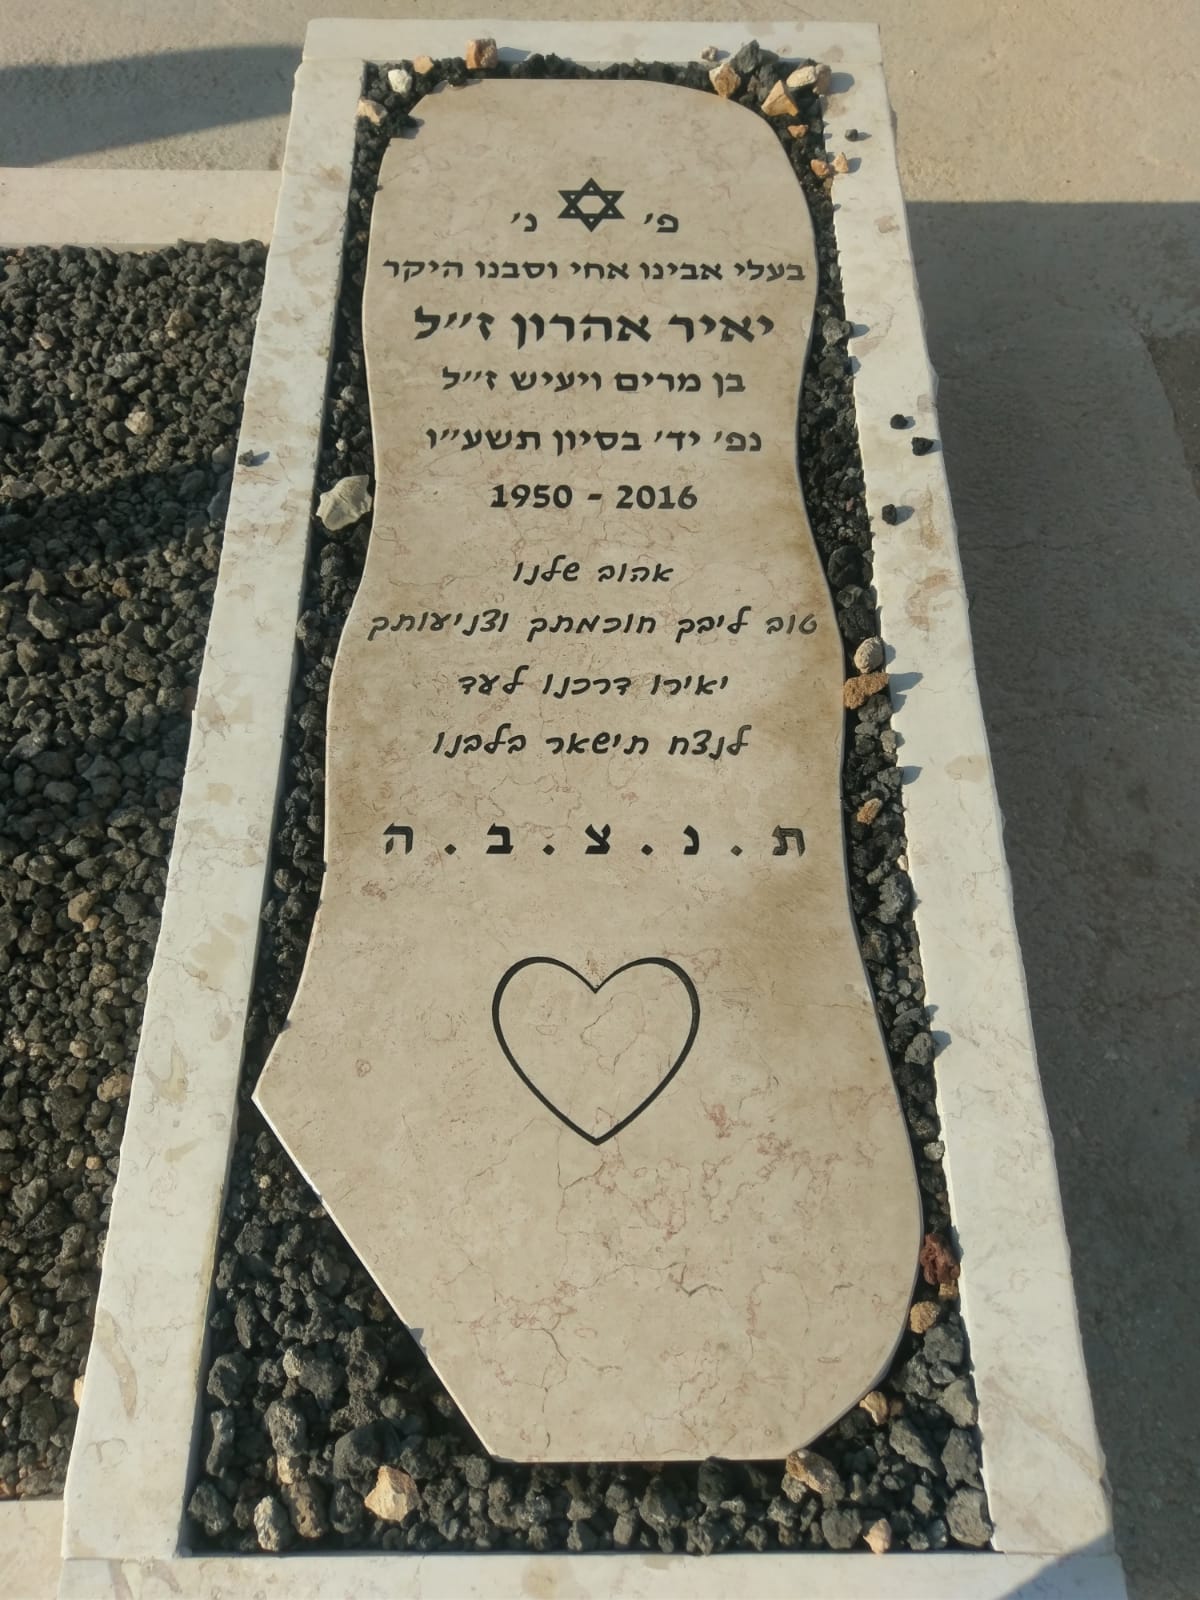 פ׳ נ׳
בעלי אבינו אחי וסבנו היקר
יאיר אהרון ז״ל
בן מרים ויעיש ז״ל
נפ׳ יד׳ בסיון תשע״ו
1950 - 2016
אהוב שלנו
טוב ליבך חוכמתך וצניעותך
יאירו דרכנו לעד
לנצח תישאר בלבנו
ת . נ . צ . ב . ה